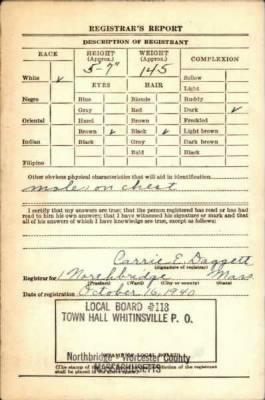 REGISTRAR'S REPORT
DESCRIPTION OF REGISTRANT
RACE HEIGHT (Approx.) WEIGHT (Approx.) COMPLEXION
5-7" 145
White ✓ Sallow
EYES HAIR Light
Negro Blue Blonde Ruddy
Gray Red Dark ✓
Oriental Hazel Brown Freckled
Brown ✓ Black ✓ Light brown
Indian Black Gray Dark brown
Bald Black
Filipino
Other obvious physical characteristics that will aid in identification
mole on chest
I certify that my answers are true; that the person registered has read or has
had read to him his own answers; that I have witnessed his signature or mark and that
all of his answers of which I have knowledge are true, except as follows:
Carrie E. Daggett
(Signature of registrar)
Registrar for 1 Northbridge Mass
(Precinct) (Ward) (City or county) (State)
Date of registration October 16, 1940
LOCAL BOARD #118
TOWN HALL WHITINSVILLE P. O.
Northbridge - Worcester County
MASSACHUSETTS
(STAMP OF LOCAL BOARD)
(The stamp of the of the registrant
shall be placed in the above space.)